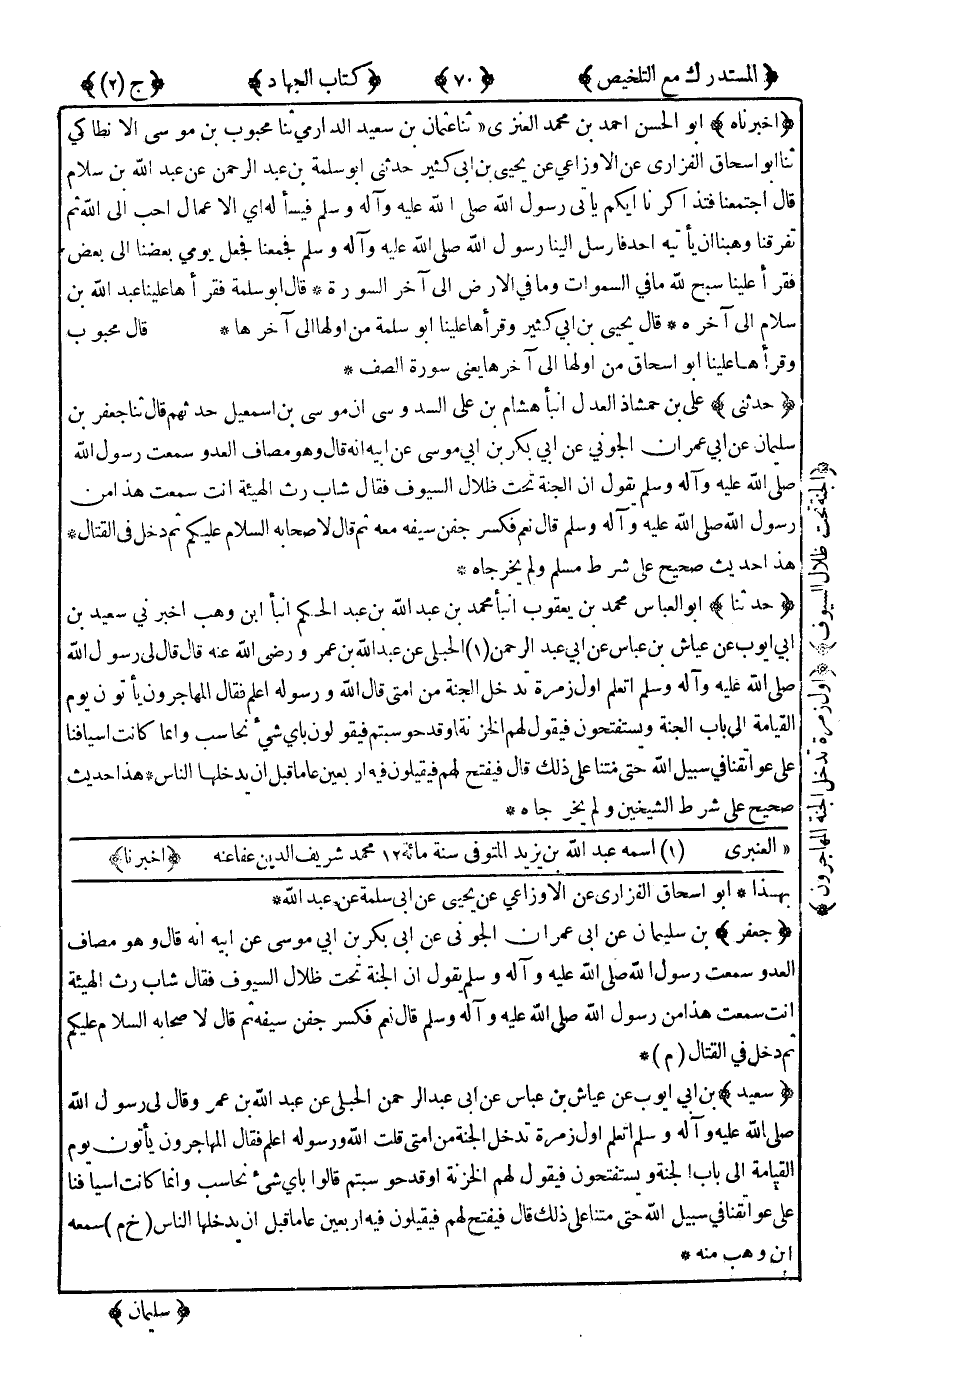 ﴿ المستدرك مع التلخيص ﴾ ﴿ ٧٠ ﴾ ﴿ كتاب الجهاد ﴾ ﴿ ج (٢) ﴾
﴿ اخبرناه ﴾ ابو الحسن احمد بن محمد العنزى « ثنا عثمان بن سعيد الدارمي ثنا محبوب بن موسى الانطاكي
ثنا ابو اسحاق الفزارى عن الاوزاعي عن يحيى بن ابي كثير حدثنى ابو سلمة بن عبد الرحمن عن عبد الله بن سلام
قال اجتمعنا فتذاكرنا ايكم ياتى رسول الله صلى الله عليه وآله وسلم فيسأله اي الاعمال احب الى الله ثم
تفرقنا وهبنا ان يأتيه احد فارسل الينا رسول الله صلى الله عليه وآله وسلم فجمعنا فجعل يومي بعضنا الى بعض
فقرأ علينا سبح لله ما في السموات وما في الارض الى آخر السورة * قال ابو سلمة فقرأها علينا عبد الله بن
سلام الى آخره * قال يحيى بن ابي كثير وقرأها علينا ابو سلمة من اولها الى آخرها * قال محبوب
وقرأها علينا ابو اسحاق من اولها الى آخرها يعنى سورة الصف *
﴿ حدثنى ﴾ على بن حمشاذ العدل انبأ هشام بن على السدوسى ان موسى بن اسمعيل حدثهم قال ثنا جعفر بن
سليمان عن ابي عمران الجوني عن ابي بكر بن ابي موسى عن ابيه انه قال وهو مصاف العدو سمعت رسول الله
صلى الله عليه وآله وسلم يقول ان الجنة تحت ظلال السيوف فقال شاب رث الهيئة انت سمعت هذا من
رسول الله صلى الله عليه وآله وسلم قال نعم فكسر جفن سيفه معه ثم قال لاصحابه السلام عليكم ثم دخل فى القتال *
هذا حديث صحيح على شرط مسلم ولم يخرجاه *
﴿ حدثنا ﴾ ابو العباس محمد بن يعقوب انبأ محمد بن عبد الله بن عبد الحكم انبأ ابن وهب اخبرني سعيد بن
ابي ايوب عن عياش بن عباس عن ابي عبد الرحمن (١) الحبلى عن عبد الله بن عمرو رضى الله عنه قال قال لى رسول الله
صلى الله عليه وسلم اتعلم اول زمرة تدخل الجنة من امتى قال الله ورسوله اعلم فقال المهاجرون يأتون يوم
القيامة الى باب الجنة ويستفتحون فيقول لهم الخزنة اوقد حوسبتم فيقولون باي شيء نحاسب وانما كانت اسيافنا
على عواتقنا في سبيل الله حتى متنا على ذلك قال فيفتح لهم فيقيلون فيه اربعين عاما قبل ان يدخلها الناس * هذا حديث
صحيح على شرط الشيخين ولم يخرجاه *
« العنبرى (١) اسمه عبد الله بن يزيد المتوفى سنة مائة ١٢ محمد شريف الدين عفا عنه ﴿ اخبرنا ﴾
بهذا * ابو اسحاق الفزارى عن الاوزاعي عن يحيى عن ابى سلمة عن عبد الله *
﴿ جعفر ﴾ بن سليمان عن ابى عمران الجونى عن ابى بكر بن ابي موسى عن ابيه انه قال وهو مصاف
العدو سمعت رسول الله صلى الله عليه وآله وسلم يقول ان الجنة تحت ظلال السيوف فقال شاب رث الهيئة
انت سمعت هذا من رسول الله صلى الله عليه وآله وسلم قال نعم فكسر جفن سيفه ثم قال لاصحابه السلام عليكم
ثم دخل في القتال (م) *
﴿ سعيد ﴾ بن ابي ايوب عن عياش بن عباس عن ابى عبد الرحمن الحبلى عن عبد الله بن عمر وقال لى رسول الله
صلى الله عليه وآله وسلم اتعلم اول زمرة تدخل الجنة من امتى قلت الله ورسوله اعلم فقال المهاجرون يأتون يوم
القيامة الى باب الجنة ويستفتحون فيقول لهم الخزنة اوقد حوسبتم قالوا باي شيء نحاسب وانما كانت اسيافنا
على عواتقنا في سبيل الله حتى متنا على ذلك قال فيفتح لهم فيقيلون فيه اربعين عاما قبل ان يدخلها الناس (خ م) سمعه
ابن وهب منه *
﴿ سليمان ﴾
﴿ الجنة تحت ظلال السيوف ﴾ ﴿ اول زمرة تدخل الجنة المهاجرون ﴾